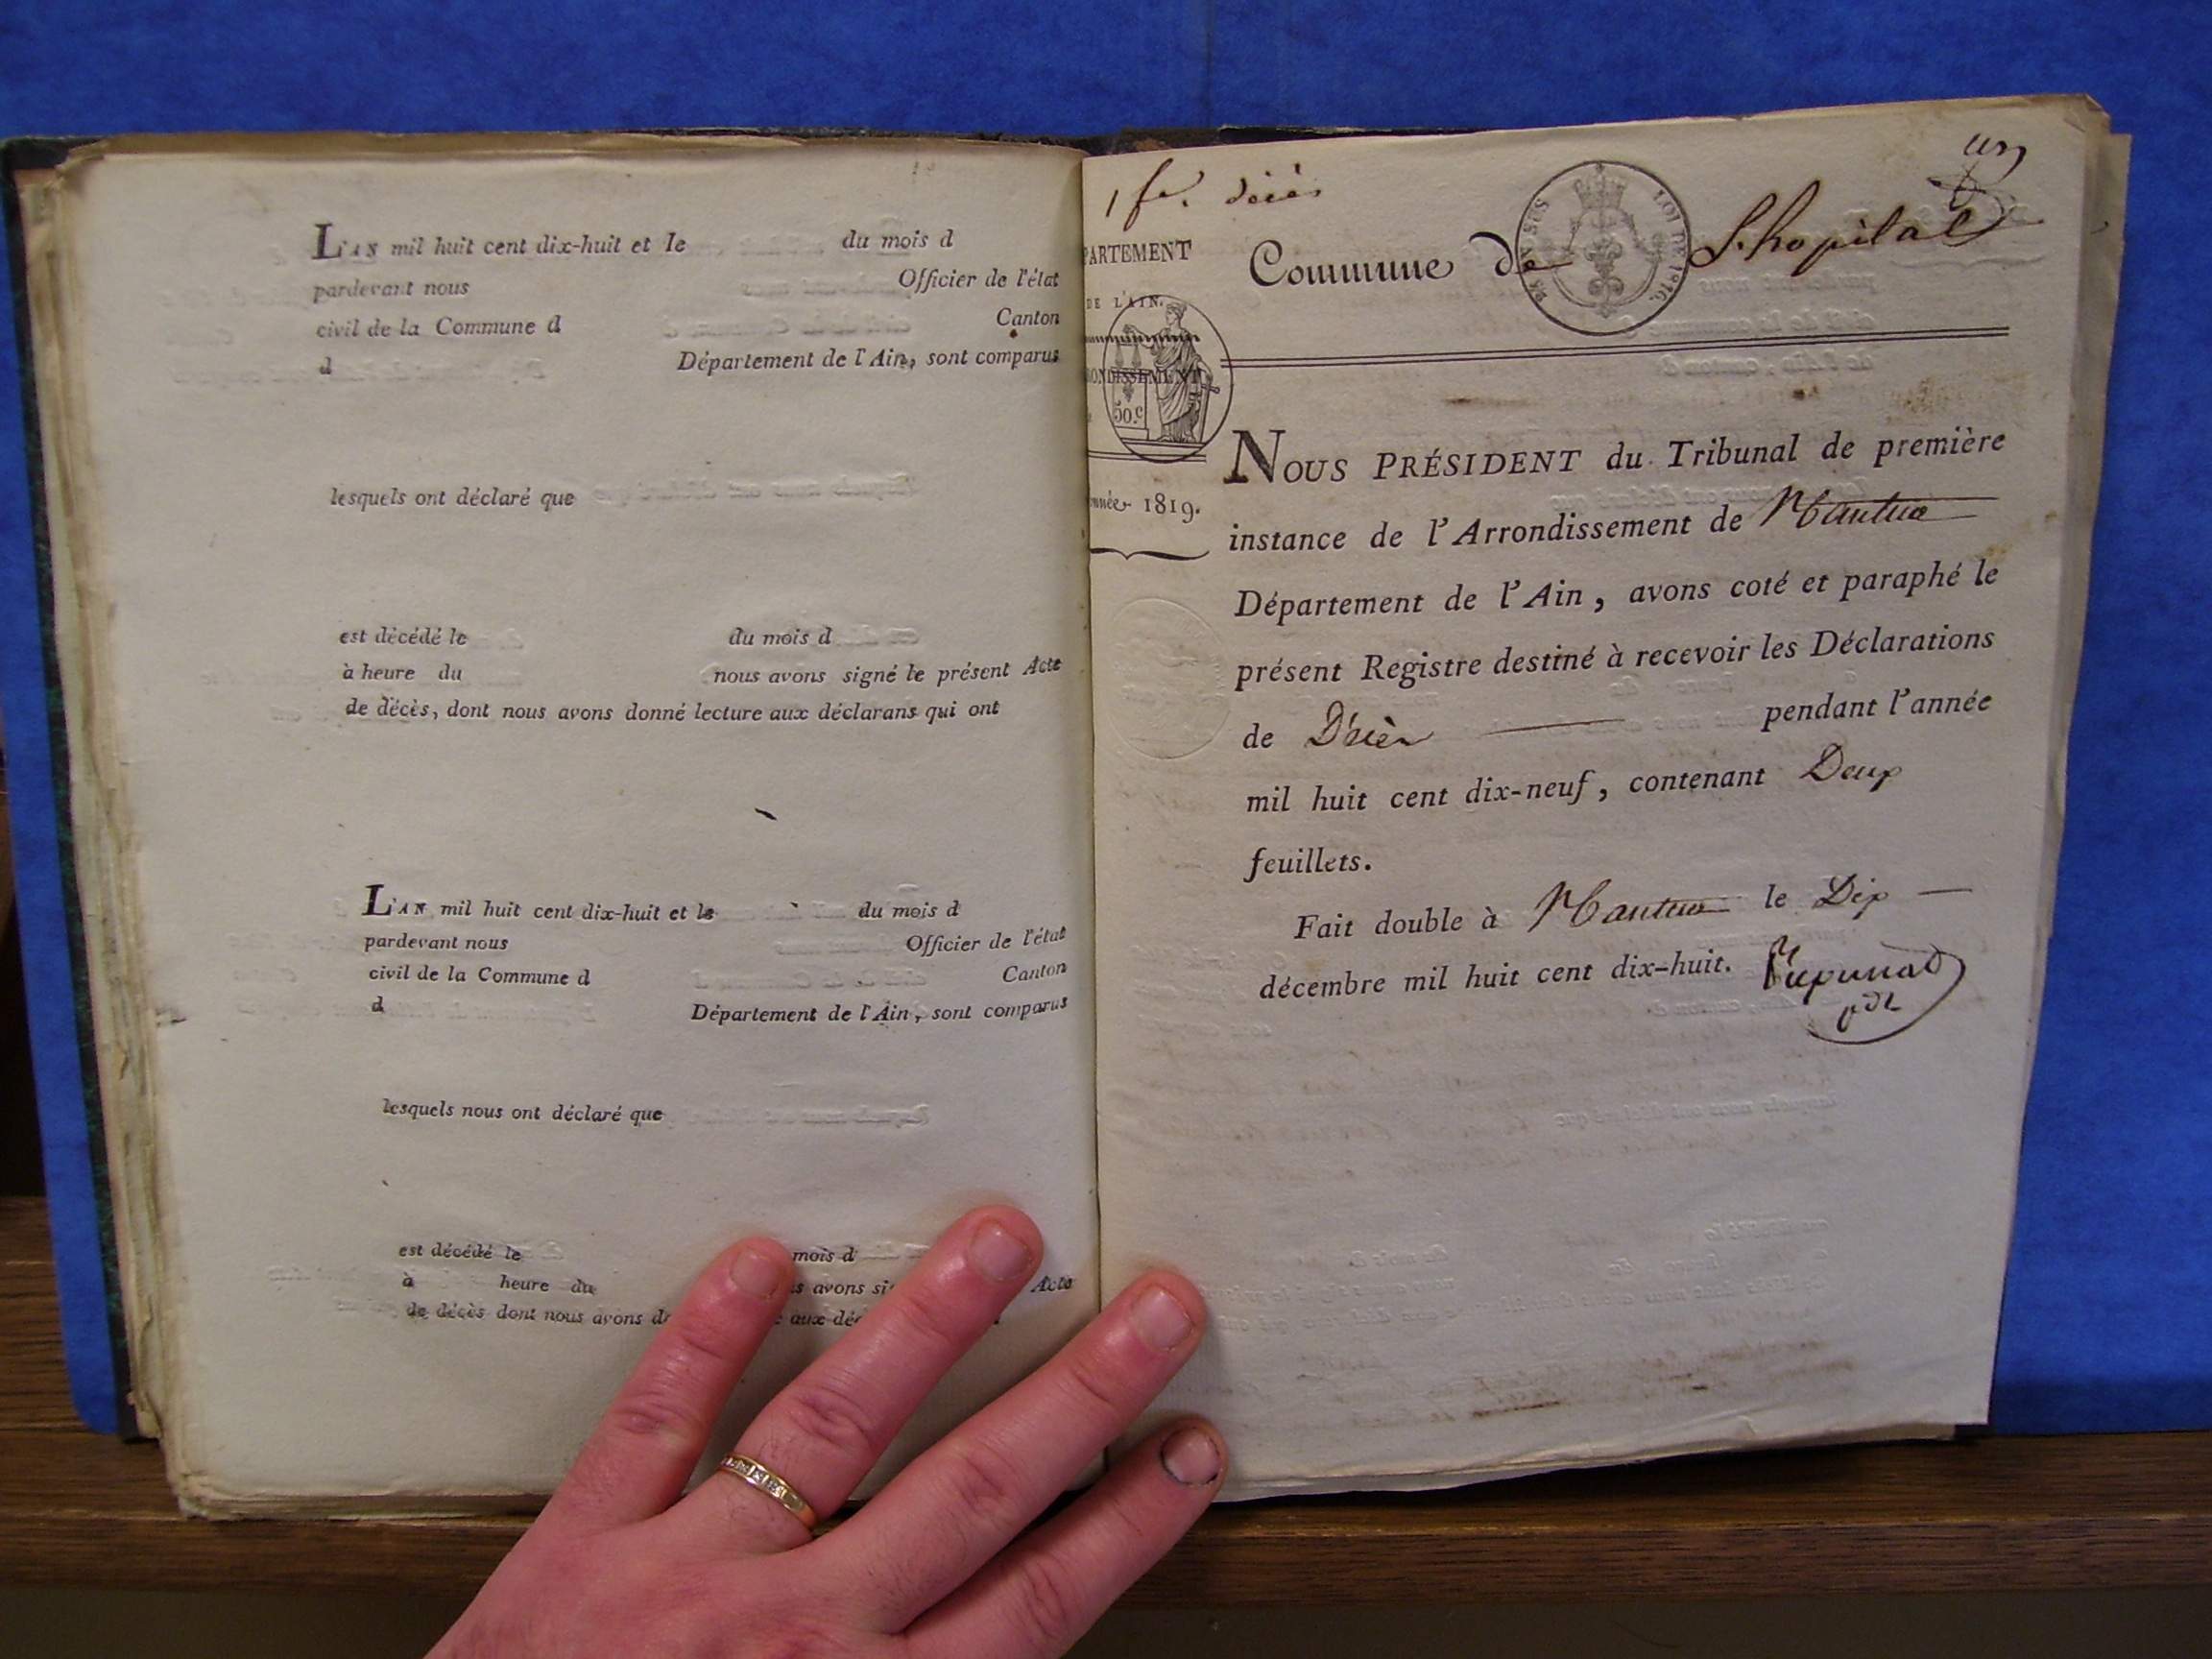 L'AN mil huit cent dix-huit et le du mois d
pardevant nous Officier de l'état
civil de la Commune d Canton
d Département de l'Ain, sont comparus
lesquels ont déclaré que
est décédé le du mois d
à heure du nous avons signé le présent Acte
de décès, dont nous avons donné lecture aux déclarans qui ont
L'AN mil huit cent dix-huit et le du mois d
pardevant nous Officier de l'état
civil de la Commune d Canton
d Département de l'Ain, sont comparus
lesquels nous ont déclaré que
est décédé le mois d
à heure du avons Acte
de décès dont nous avons aux
un
1 fr. décès
PARTEMENT
DE L'AIN.
ONDISSEMENT
50.c
nnée 1819.
Commune de Lhopital
LOI DE 1816.
NOUS PRÉSIDENT du Tribunal de première
instance de l'Arrondissement de Nantua
Département de l'Ain, avons coté et paraphé le
présent Registre destiné à recevoir les Déclarations
de Décès pendant l'année
mil huit cent dix-neuf, contenant Deux
feuillets.
Fait double à Nantua le Dix
décembre mil huit cent dix-huit.
pdt